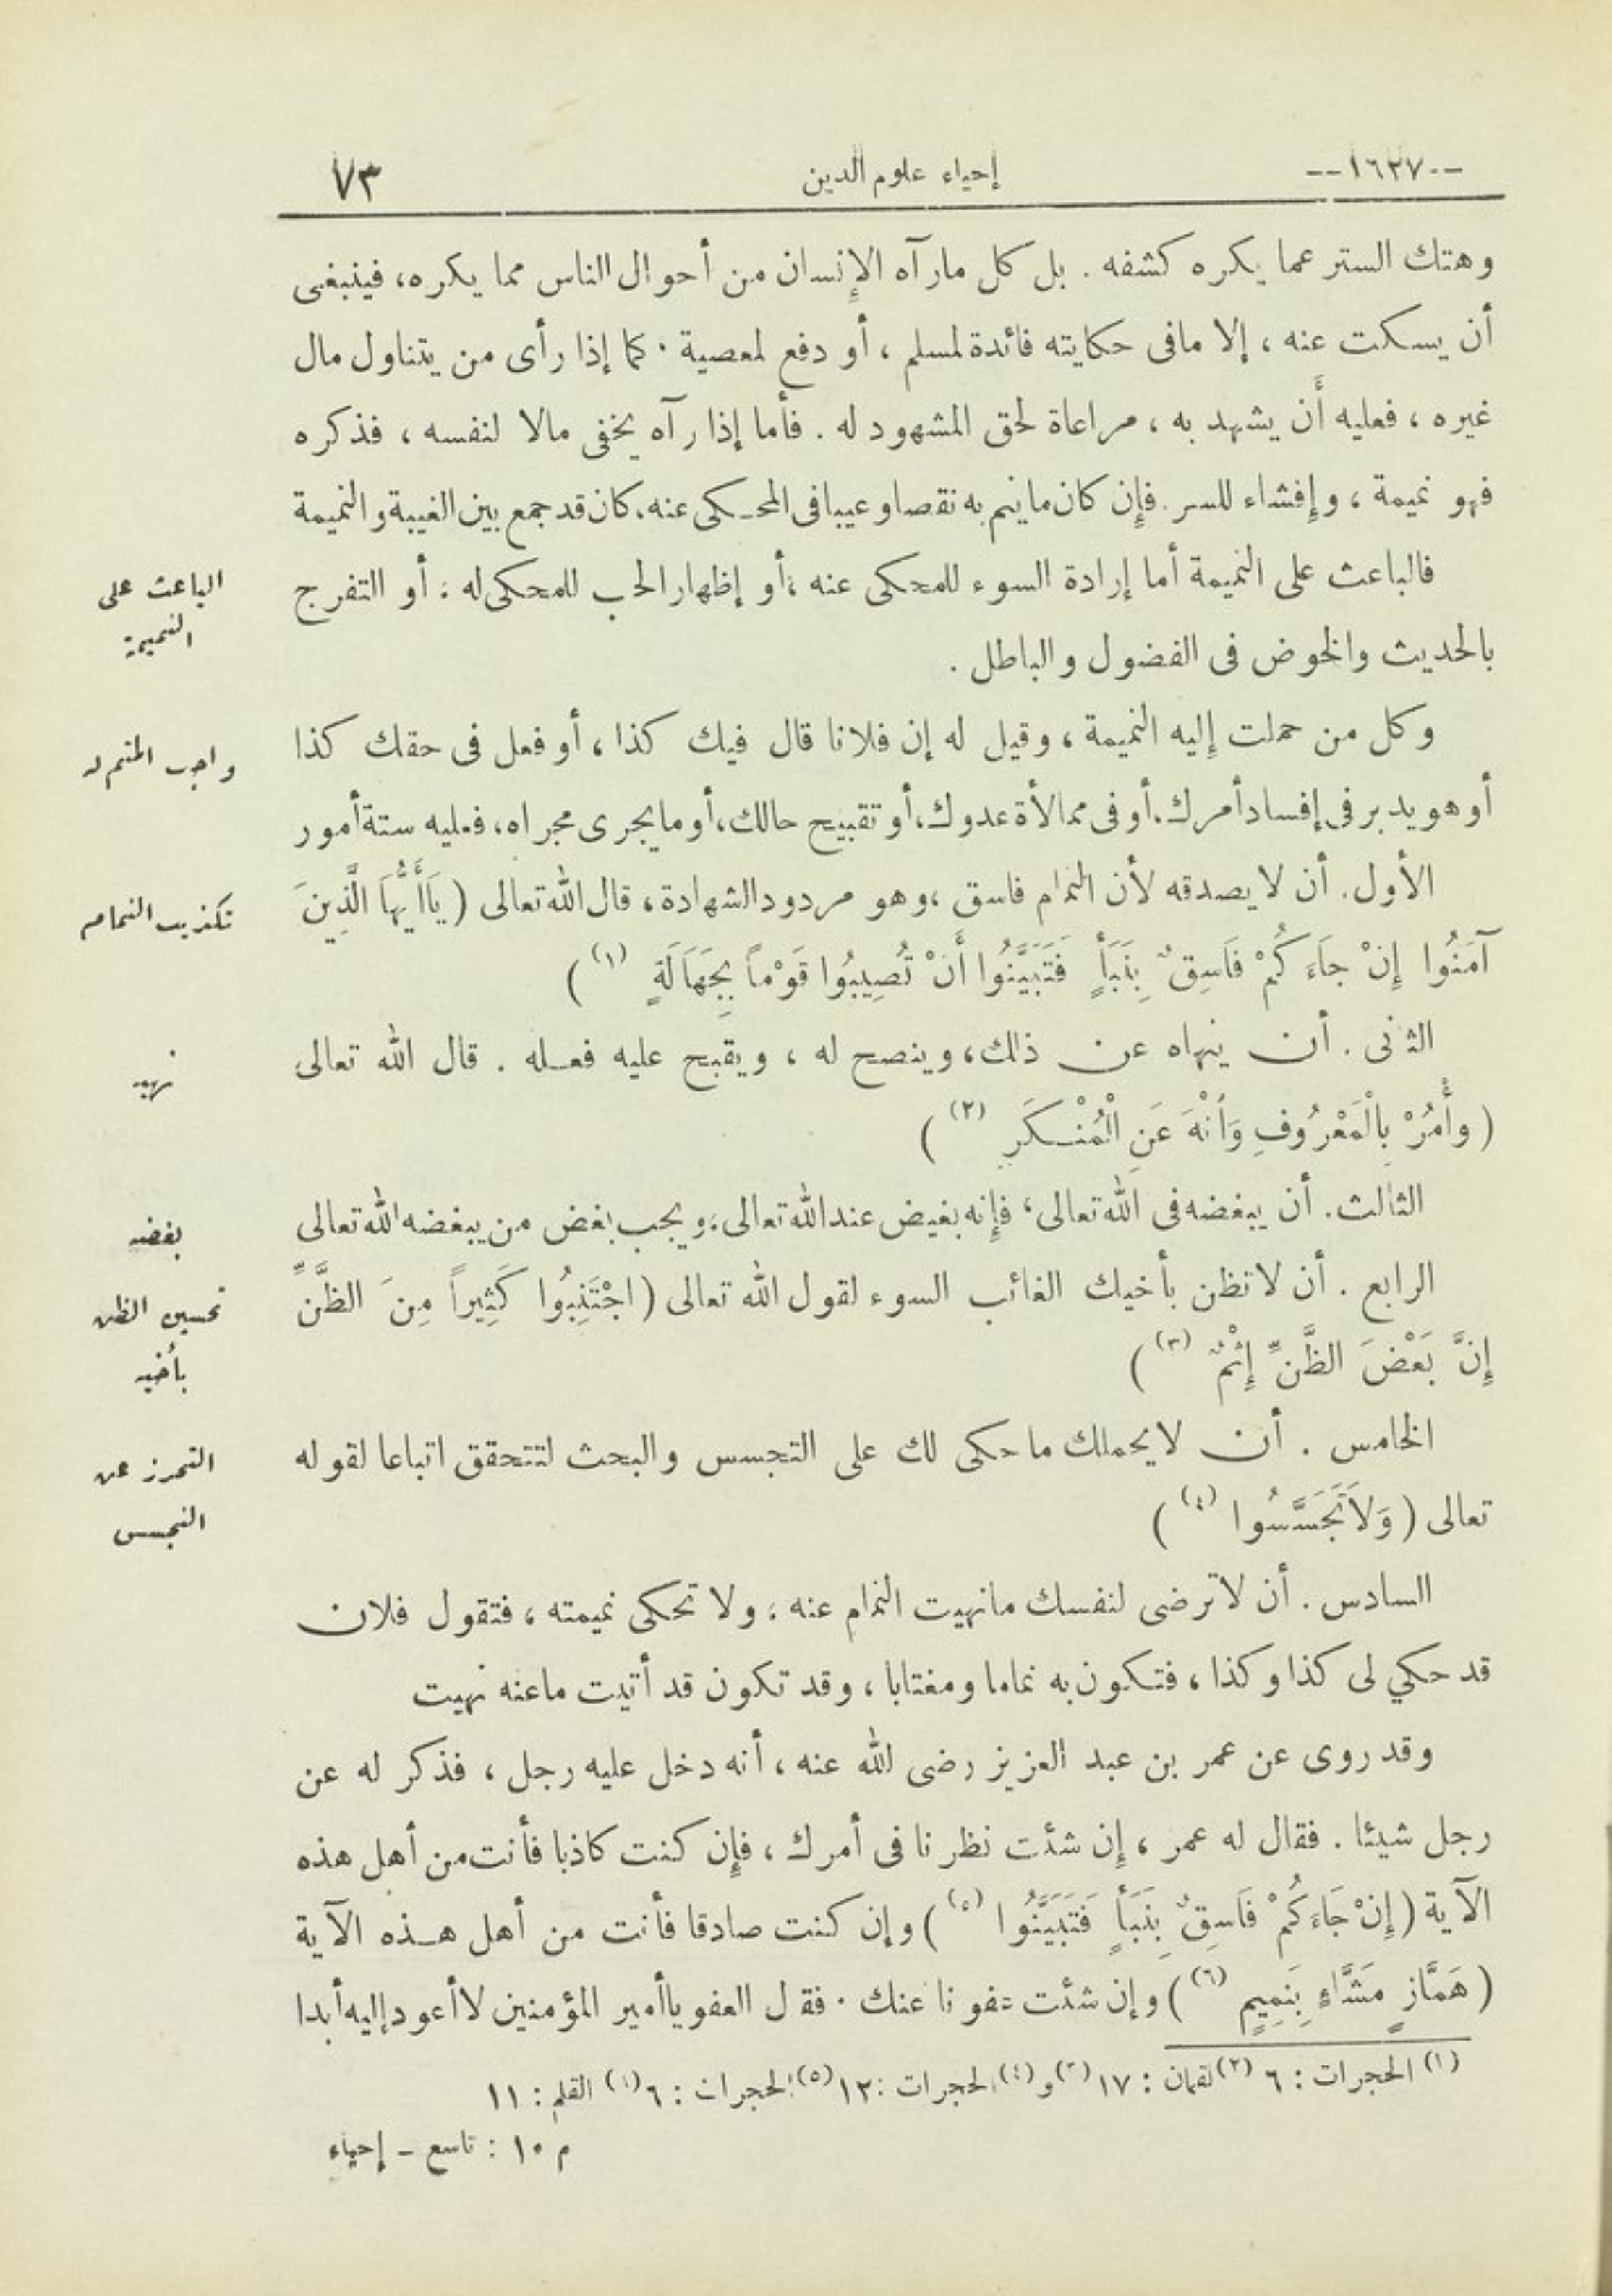 --١٦٢٧--
إحياء علوم الدين
٧٣
وهتك الستر عما يكره كشفه . بل كل مارآه الإنسان من أحوال الناس مما يكره، فينبغى
أن يسكت عنه ، إلا مافى حكايته فائدة لمسلم ، أو دفع لمعصية . كما إذا رأى من يتناول مال
غيره ، فعليه أن يشهد به ، مراعاة لحق المشهود له . فأما إذا رآه يخفى مالا لنفسه ، فذكره
فهو نميمة ، وإفشاء للسر . فإن كان ماينم به نقصا وعيبا فى المحكى عنه، كان قد جمع بين الغيبة والنميمة
فالباعث على النميمة أما إرادة السوء للمحكى عنه ، أو إظهار الحب للمحكى له ، أو التفرج
الباعث على
النميمة
بالحديث والخوض فى الفضول والباطل .
وكل من حملت إليه النميمة ، وقيل له إن فلانا قال فيك كذا ، أو فعل فى حقك كذا
واجب المنم له
أو هو يدبر فى إفساد أمرك، أو فى ممالأة عدوك، أو تقبيح حالك، أو مايجرى مجراه، فعليه ستة أمور
الأول . أن لا يصدقه لأن النمام فاسق ، وهو مردود الشهادة ، قال الله تعالى ( يَاأَيُّهَا الَّذِينَ
تكذيب النمام
آمَنُوا إِنْ جَاءَكُمْ فَاسِقٌ بِنَبَأٍ فَتَبَيَّنُوا أَنْ تُصِيبُوا قَوْماً بِجَهَالَةٍ (١) )
الثانى . أن ينهاه عن ذلك، وينصح له ، ويقبح عليه فعله . قال الله تعالى
نهيه
( وأْمُرْ بِالْمَعْرُوفِ وَانْهَ عَنِ الْمُنْكَرِ (٢) )
الثالث. أن يبغضه فى الله تعالى، فإنه بغيض عند الله تعالى، ويجب بغض من يبغضه الله تعالى
بغضه
الرابع . أن لا تظن بأخيك الغائب السوء لقول الله تعالى ( اجْتَنِبُوا كَثِيراً مِنَ الظَّنِّ
تحسين الظن
بأخيه
إِنَّ بَعْضَ الظَّنِّ إِثْمٌ (٣) )
الخامس . أن لا يحملك ما حكى لك على التجسس والبحث لتتحقق اتباعا لقوله
التحرز عن
التجسس
تعالى ( وَلَاتَجَسَّسُوا (٤) )
السادس . أن لا ترضى لنفسك مانهيت النمام عنه ، ولا تحكى نميمته ، فتقول فلان
قد حكي لى كذا وكذا ، فتكون به نماما ومغتابا ، وقد تكون قد أتيت ماعنه نهيت
وقد روى عن عمر بن عبد العزيز رضى الله عنه ، أنه دخل عليه رجل ، فذكر له عن
رجل شيئا . فقال له عمر ، إن شئت نظرنا فى أمرك ، فإن كنت كاذبا فأنت من أهل هذه
الآية ( إِنْ جَاءَكُمْ فَاسِقٌ بِنَبَأٍ فَتَبَيَّنُوا (٥) ) وإن كنت صادقا فأنت من أهل هذه الآية
( هَمَّازٍ مَشَّاءٍ بِنَمِيمٍ (٦) ) وإن شئت عفونا عنك . فقال العفو ياأمير المؤمنين لا أعود إليه أبدا
(١) الحجرات : ٦ (٢) لقمان : ١٧ (٣) و (٤) الحجرات : ١٢ (٥) الحجرات : ٦ (٦) القلم : ١١
م ١٠ : تاسع - إحياء